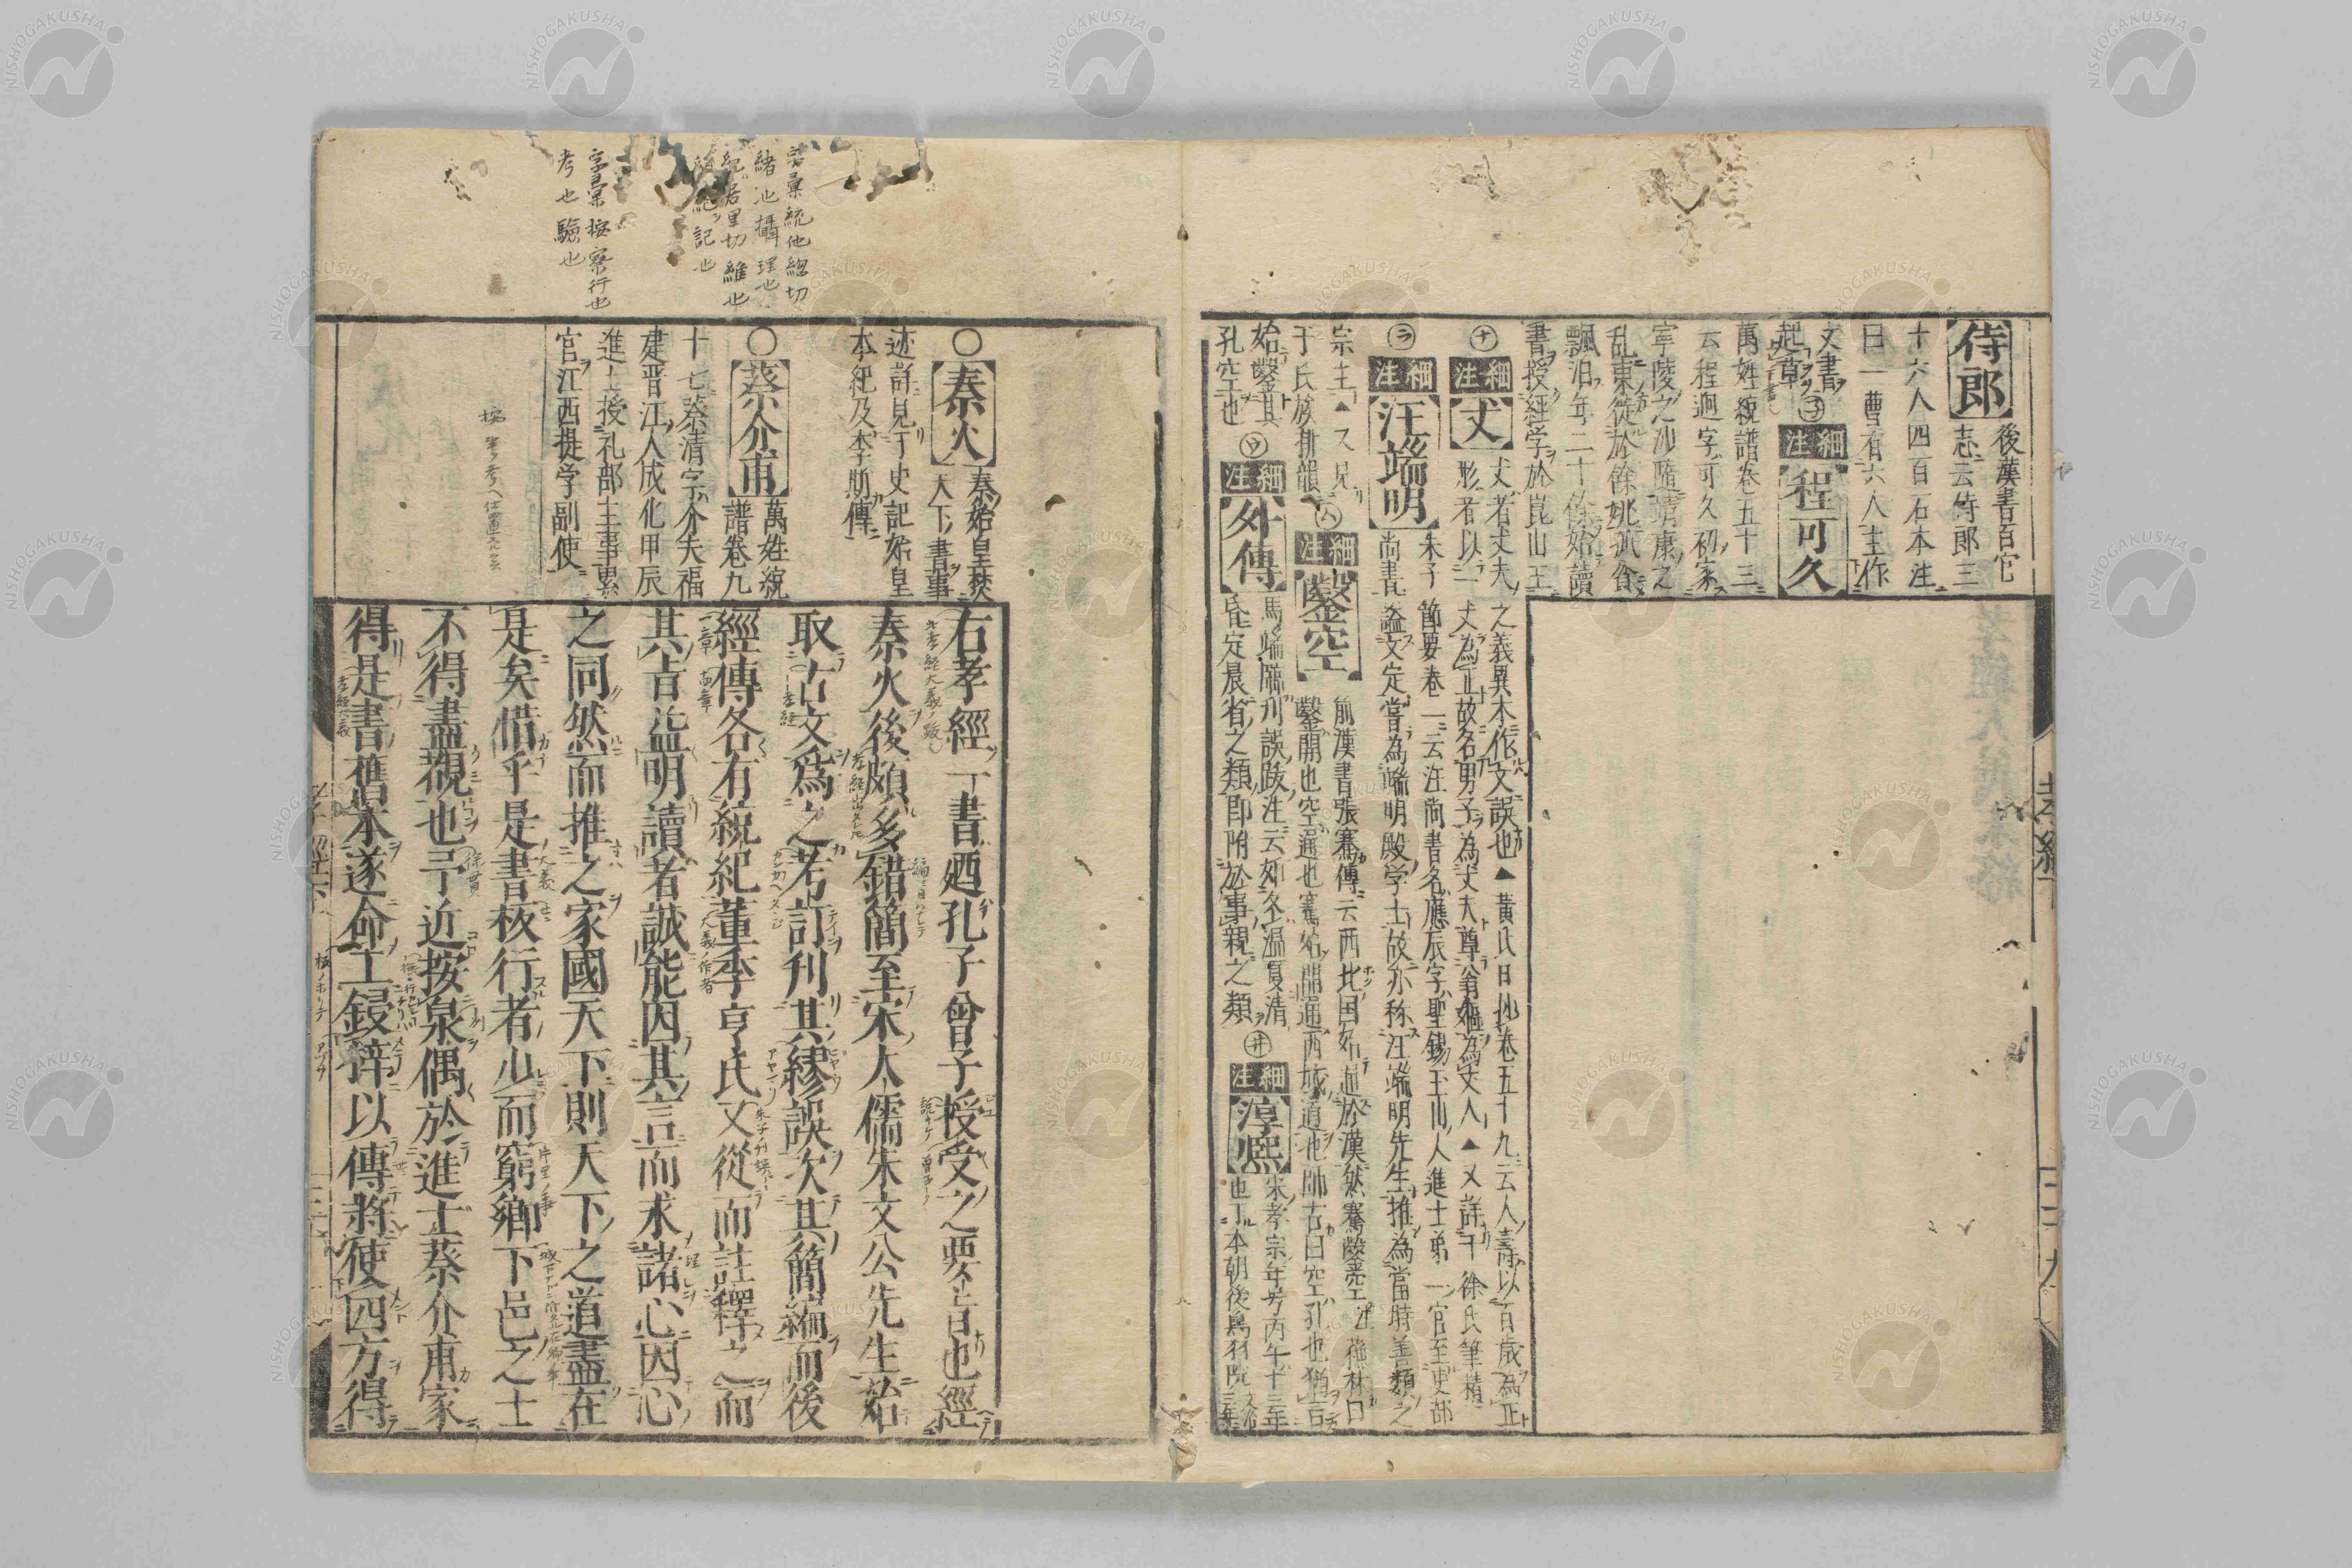 侍郎 後漢書百官
志云侍郎三
十六人四百石本注
曰一曹有六人主作
文書
起草
子 細注 程可久
萬姓統譜卷五十三
云程迥字可久初家
寧陵之沙隨靖康之
乱東徙於餘姚孤貧
飄泊年二十餘始讀
書授経学於崑山王
十 細注 丈 丈者丈夫
形者以一
之義異本作文誤也▲黄氏日抄卷五十九云人壽以百歳為正
丈為正故名男子為丈夫尊翁嫗為丈人▲又詳于徐氏筆精
ラ 細注 汪端明 朱子
尚書
節要卷一云汪尚書名應辰字聖錫玉山人進士第一官至吏部
諡文定嘗為端明殿学士故亦称汪端明先生推為當時善類之
宗主▲又見
于氏族排韻
ム 細注 鑿空 前漢書張騫傳云西北国始通於漢然騫鑿空注蘇林曰
鑿開也空通也騫始開通西域道也師古曰空孔也猶言
始鑿其
孔空也
ウ 細注 外傳 馬端臨刊誤跋注云如冬温夏凊
昏定晨省之類即附於事親之類
井 細注 淳熙 宋孝宗年号丙午十三年
也丁本朝後鳥羽院文治三年
孝經
二十九
字彙統他總切
緒也攝理也
紀居里切維也
記也
字彙按察行也
考也驗也
○秦火 秦始皇焚
天下書事
迹詳見于史記始皇
本紀及李斯傳
○蔡介甫 萬姓統
譜卷九
十七蔡清字介夫福
建晋江人成化甲辰
進士授礼部主事累
官江西提学副使
右孝經一書廼孔子曾子授受之要旨也經
秦火後頗多錯簡至宋大儒朱文公先生始
取古文爲之考訂刊其繆誤次其簡編而後
經傳各有統紀董季亨氏又從而註釋之而
其旨益明讀者誠能因其言而求諸心因心
之同然而推之家國天下則天下之道盡在
是矣惜乎是書板行者少而窮鄉下邑之士
不得盡觀也予近按泉偶於進士蔡介甫家
得是書舊本遂命工鋟梓以傳將使四方得